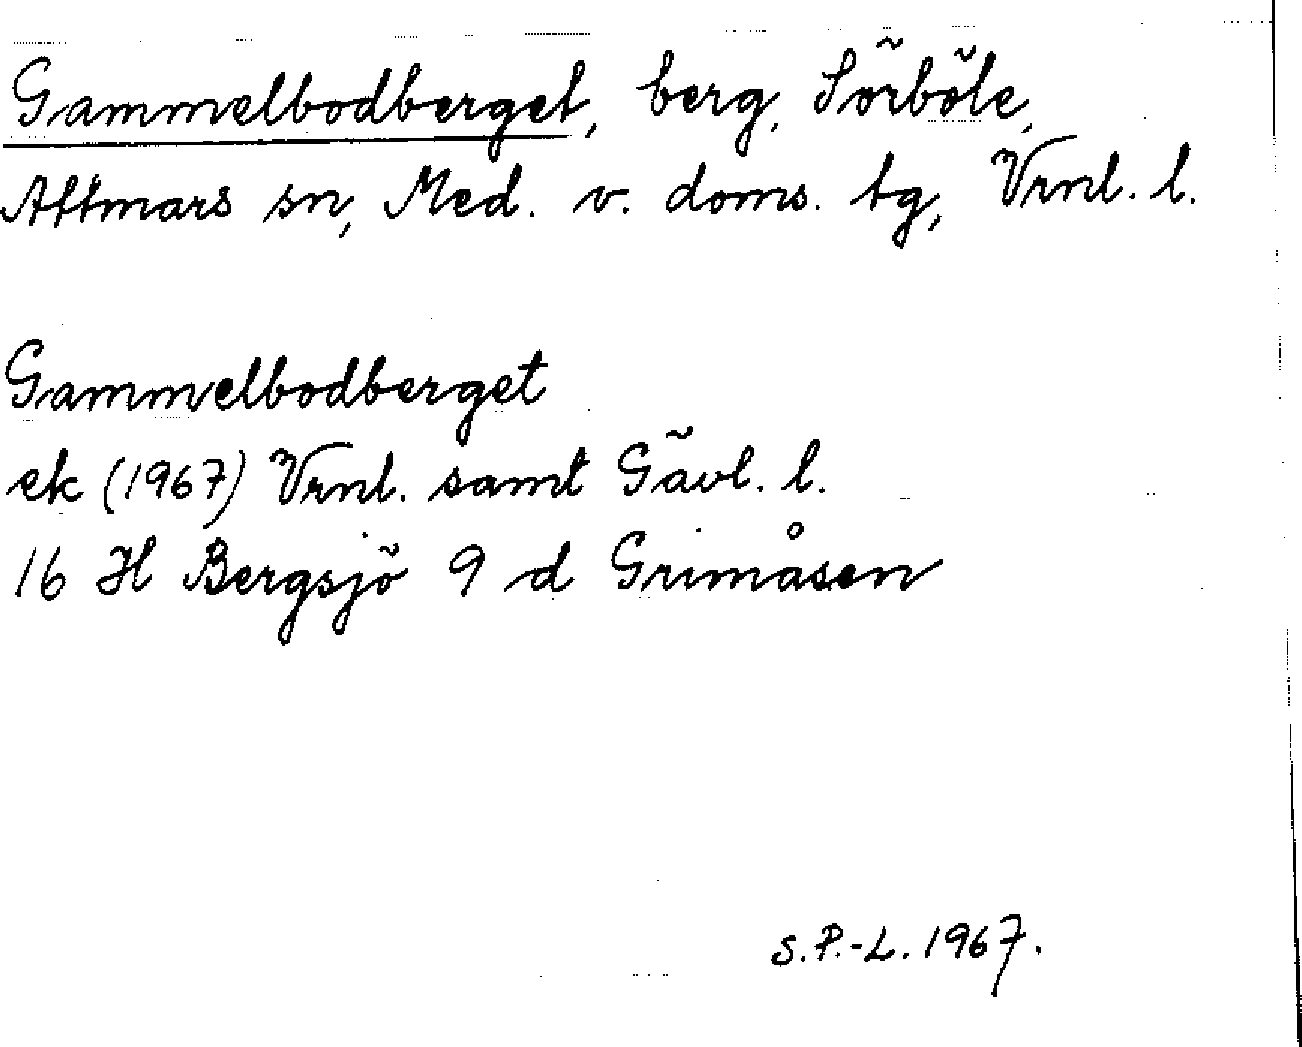 Gammelbodberget, berg, Sörböle,
Attmars sn, Med. v. doms. tg, Vrnl. l.
Gammelbodberget
ek (1967) Vrnl. samt Gävl. l.
16 H Bergsjö 9 d Grimåsen
S.P.-L. 1967.